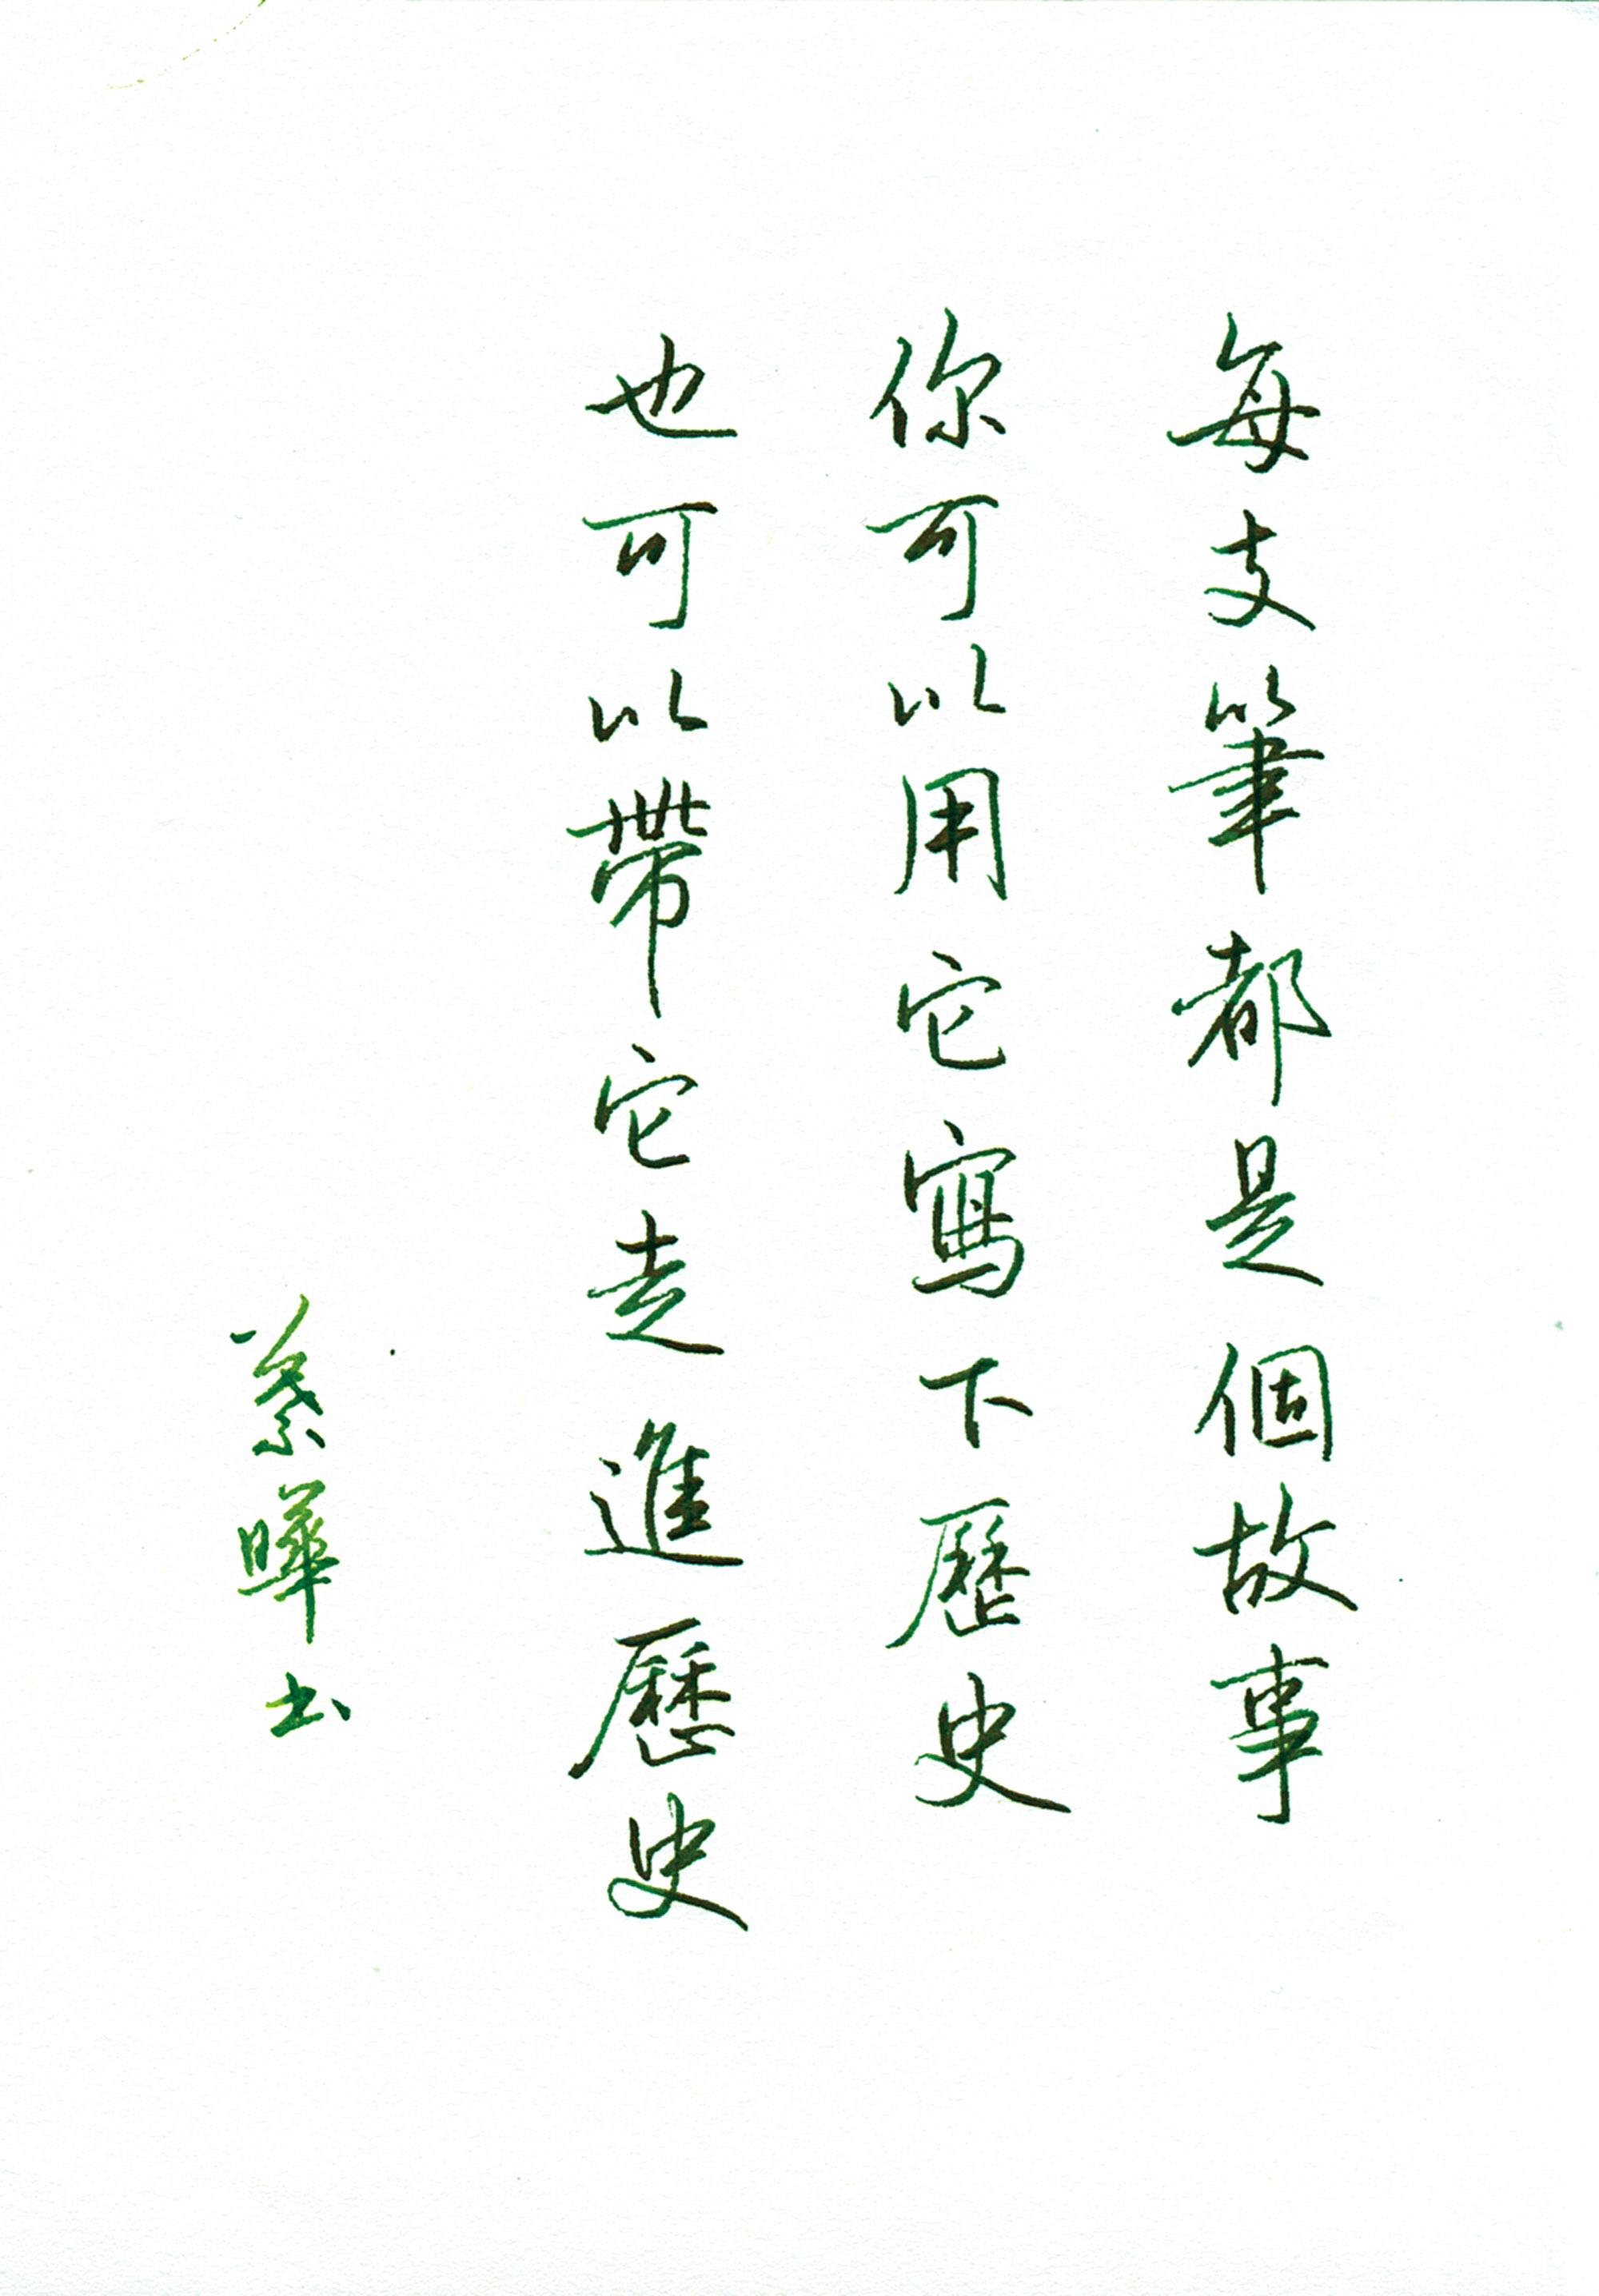 每支筆都是個故事
你可以用它寫下歷史
也可以帶它走進歷史
蔡曄书